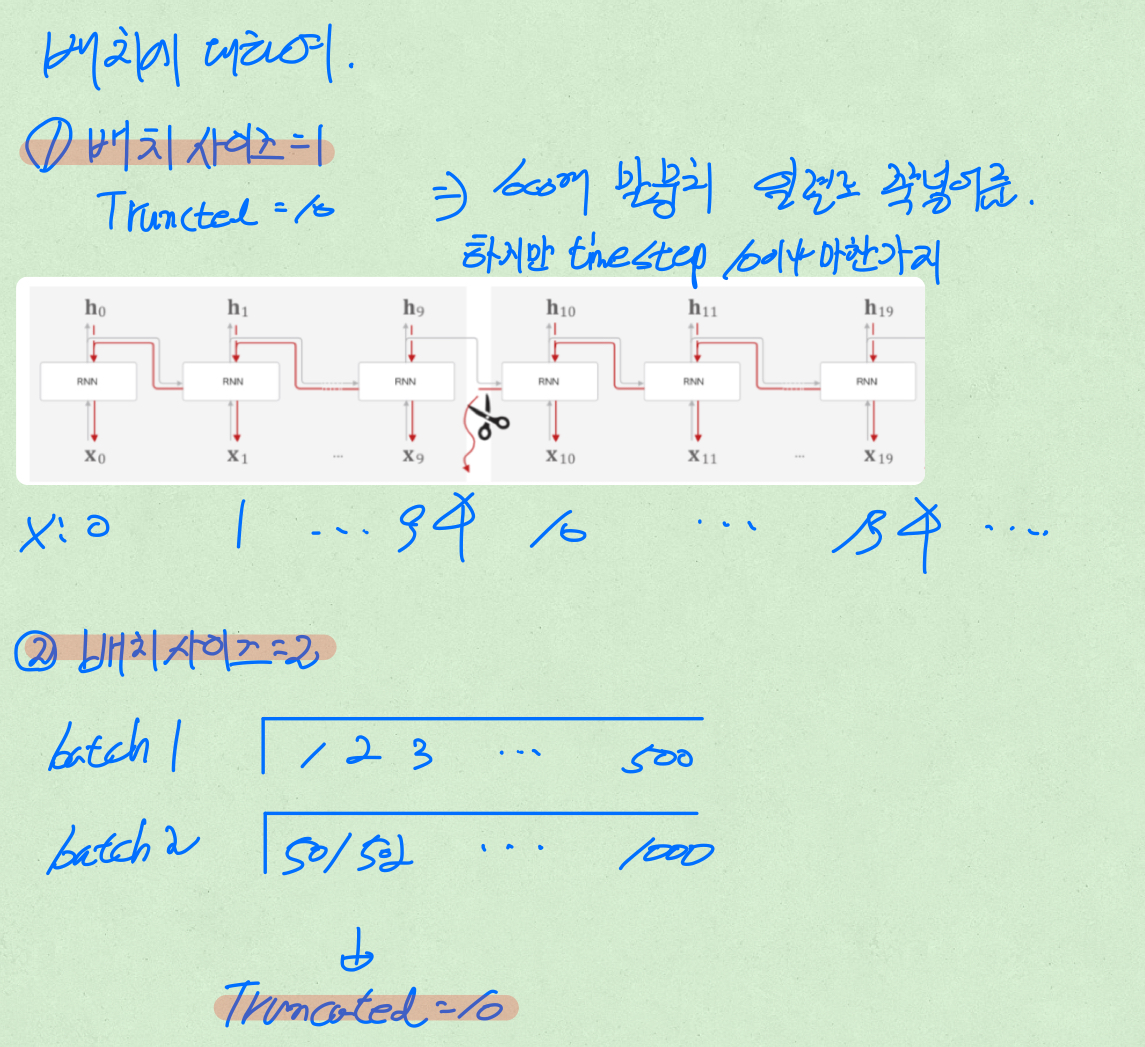 배치에 대하여.
① 배치 사이즈=1
Truncted =10 ⇒ 1000개 말뭉치 일렬로 쭉 넣어줌.
하지만 timestep 10이 마찬가지
h0 h1 h9 h10 h11 h19
RNN RNN RNN RNN RNN RNN
x0 x1 ... x9 x10 x11 ... x19
x: 0 1 ... 9 10 ... 19 ....
② 배치 사이즈=2
batch 1 1 2 3 ... 500
batch 2 501 502 ... 1000
↓
Truncated =10